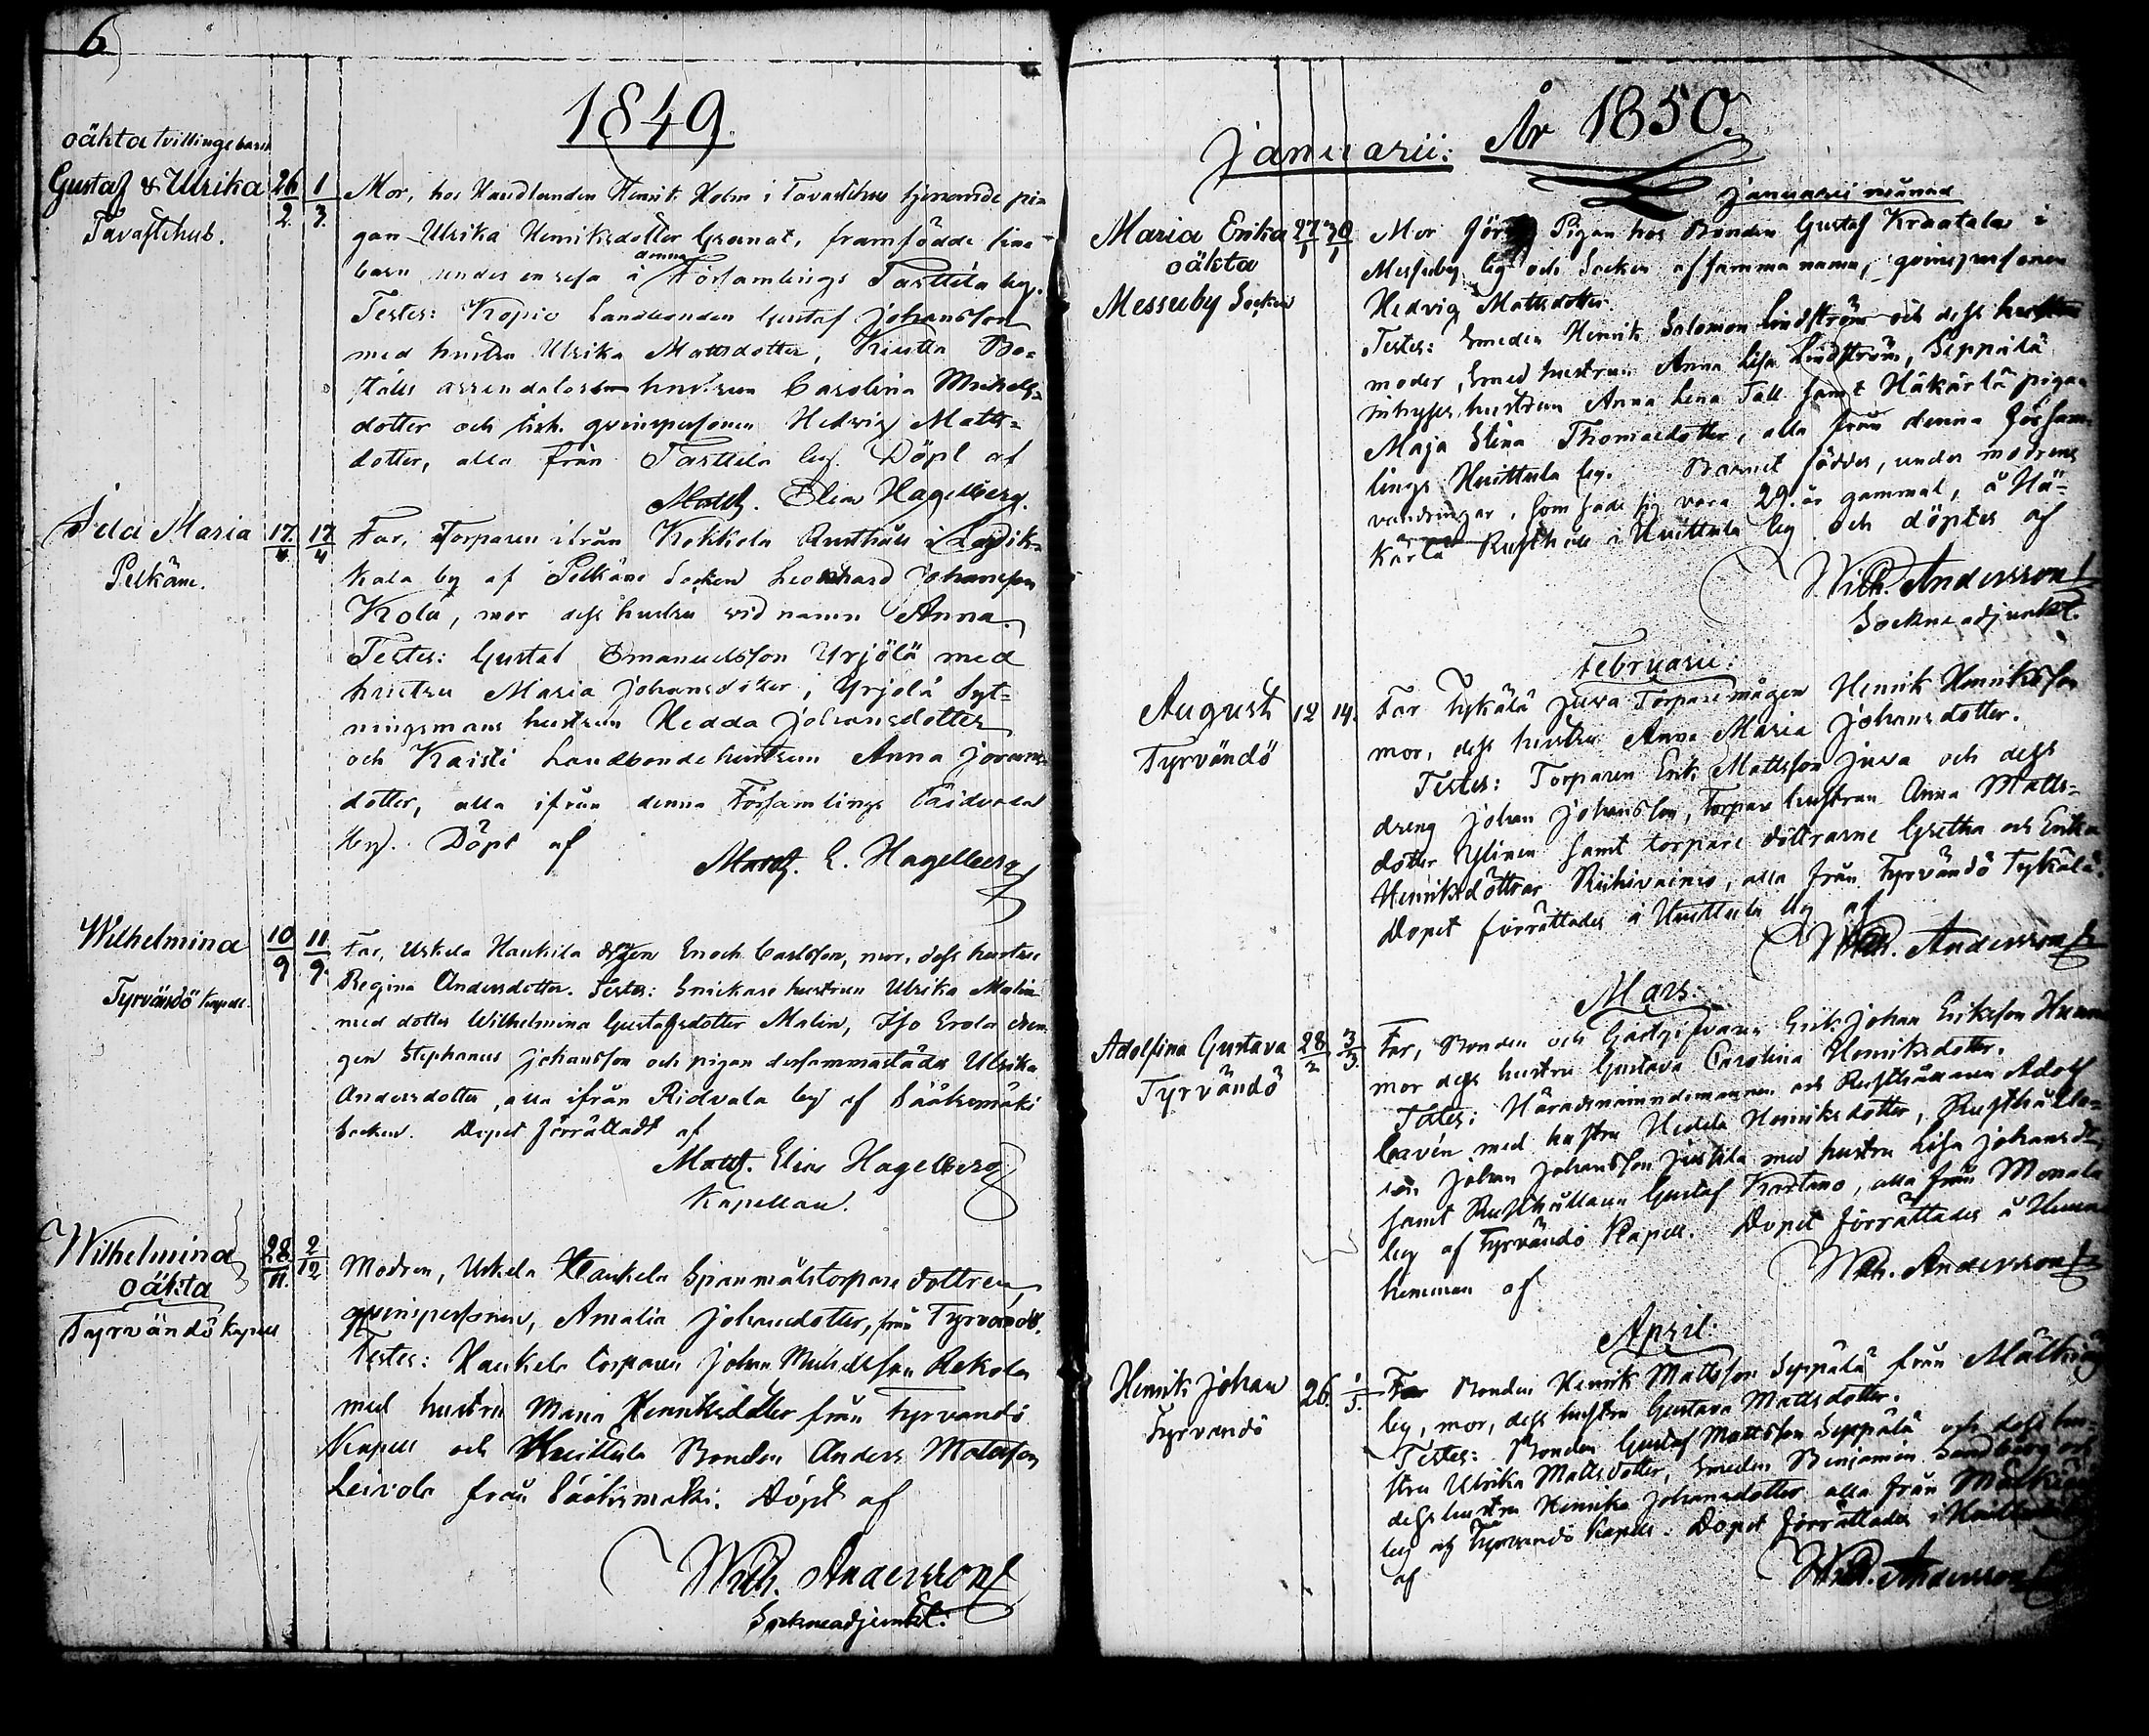 6
1849.
oäkta tvillingebarn
Gustaf & Ulrika 26/2 1/3
Tavastehus.
Mor, hos Handlanden Henrik Holm i Tavastehus tjenande pi-
gan Ulrika Henriksdotter Granat, framfödde sina
barn under en resa i denna Församlings Tarttila by.
Testes: Kopio Landbonden Gustaf Johansson
med hustru Ulrika Mattsdotter, Bo-
ställs arrendators hustrun Carolina Michels-
dotter och qvinspersonen Hedvig Matts-
dotter, alla från Tarttila by. Döpt af
Matth. Elias Hagelberg.
Ida Maria 17/4 17/4
Pelkäne.
Far, Torparen ifrån Kokkola Rusthåll i
kala by af Pelkäne Socken Leonhard Johansson
Kola, mor dess hustru vid namn Anna.
Testes: Gustaf Emanuelsson Yrjölä med
hustru Maria Johansdotter, Yrjölä Syt-
ningsmans hustrun Hedda Johansdotter
och Kaisti Landbonde hustrun Anna
dotter, alla ifrån denna Församlings
by. Döpt af
Matth. E. Hagelberg
Wilhelmina 10/9 11/9
Tyrvändö Kapell.
Far, Uskela Haukila drgen Enoch Carlsson, mor, dess hustru
Regina Andersdotter. Testes: Snickare hustrun Ulrika Malin
med dotter Wilhelmina Gustafsdotter Malin, Iso Erola dren-
gen Stephanus Johansson och pigan dersammastädes Ulrika
Andersdotter, alla ifrån Ridvala by af Sääksmäki
Socken. Dopet förrättadt af
Matth. Elias Hagelberg
Kapellan.
Wilhelmina 28/11. 2/12
oäkta
Tyrvändö Kapell
Modren, Uskela Haukela Spanmålstorpare dottren
qvinspersonen, Amalia Johansdotter, från Tyrvändö.
Testes: Haukela torparen Johan Michelsson Rekola
med hustru Maria Henriksdotter från Tyrvändö
Kapell och Huittula Bonden Anders Matsson
Leivola från Sääksmäki. Döpt af
Wilh. Andersson
Sockneadjunkt.
År 1850.
Januarii:
Januarii månad
Maria Erika 27/1 30/1
oäkta
Messuby Socken
Mor Pigan hos Bonden Gustaf Kraatala i
Messuby by och Socken af samma namn, qvinspersonen
Hedvig Mattsdotter.
Testes: Smeden Henrik Salomon Lindström och dess
moder, Smed hustrun Anna Lisa Lindström, Seppälä
inhyses hustrun Anna Lena Tall samt Häkärlä pigan
Maja Stina Thomasdotter, alla från denna Försam-
lings Huittula by. Barnet föddes, under modrens
vandringar, som sade sig vara 29. år gammal, å Hä-
kärlä Rusthåll i Huittula by och döptes af
Wilh. Andersson
Sockne adjunkt.
Februarii:
August 12 14.
Tyrvändö
Far Tykälä Juva Torparemågen Henrik Henriksson
mor, dess hustru Anna Maria Johansdotter.
Testes: Torparen Erik Mattsson Juva och dess
dreng Johan Johansson, Torpar hustrun Anna Matts-
dotter Ylinen samt torpare döttrarne Gretha och Erika
Henriksdöttrar Riihivainio, alla från Tyrvändö Tykälä.
Dopet förrättades i Huittula by af
Wilh. Andersson
Mars:
Adolfina Gustava 28/2 3/3.
Tyrvändö
Far, Bonden och Gästgifvaren Erik Johan Eriksson
mor dess hustru Gustava Carolina Henriksdotter.
Testes: Häradsnämndemannen och Rusthållaren Adolf
Cavén med hustru Hedda Henriksdotter, Rusthålla-
ren Johan Johansson Jussila med hustru Lisa Johansdr,
samt Rusthållaren Gustaf Kartano, alla från Monala
by af Tyrvändö Kapell. Dopet förrättades å
hemman af
Wilh. Andersson
April:
Henrik Johan 26. 1/5.
Tyrvändö
Far Bonden Henrik Mattsson Seppälä från Mälkiäis
by, mor, dess hustru Gustava Mattsdotter.
Testes: Bonden Gustaf Mattsson Seppälä och dess hu-
stru Ulrika Mattsdotter, Smeden Benjamin Sandberg och
dess hustru Henrika Johansdotter alla från Mälkiäis
by af Tyrvändö Kapell. Dopet förrättades i Huittula by
af
Wilh. Andersson